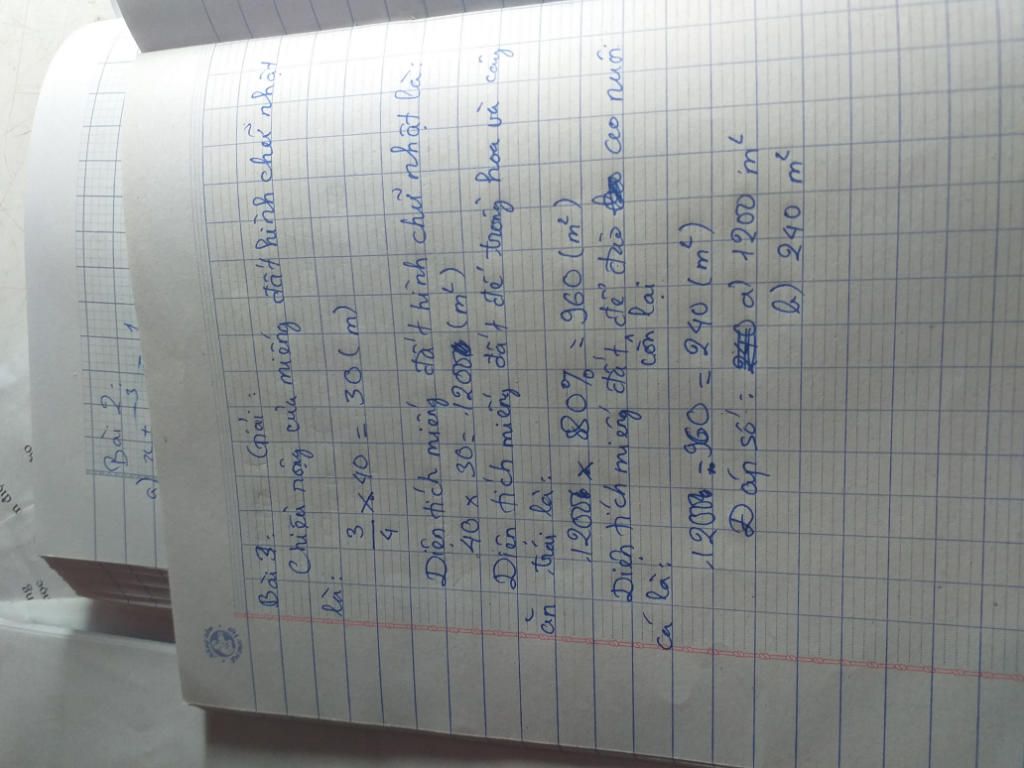 Bài 2:
a) x +
3
= 1
Bài 3: Giải:
Chiều rộng của miếng đất hình chữ nhật
là:
3
4
x 40 = 30 (m)
Diện tích miếng đất hình chữ nhật là:
40 x 30 = 1200 (m²)
Diện tích miếng đất để trồng hoa và cây
ăn trái là:
1200 x 80% = 960 (m²)
Diện tích miếng đất để đào ao nuôi
còn lại
cá là:
1200 - 960 = 240 (m²)
Đáp số: a) 1200 m²
b) 240 m²